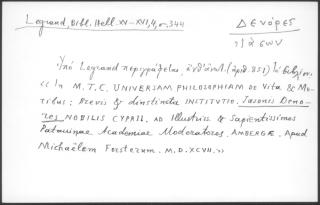 Legrand, Bibl. Hell. XV-XVI, 4, σ. 344
Δενόρες
Ἰάσων
Ὑπὸ Legrand περιγράφεται, ἐνθ' ἀνωτ. (ἀριθ. 851) τὸ βιβλίον
« In M.T.C. UNIVERSAM PHILOSOPHIAM De Vita & Mo-
ribus; Brevis & distincta INSTITUTIO. Iasonis Deno-
res NOBILIS CYPRII. AD Illustriss & Sapientissimos
Patavinae Academiae Moderatores. AMBERGÆ. Apud
Michaëlem Forsterum. M.D.XCVII. »